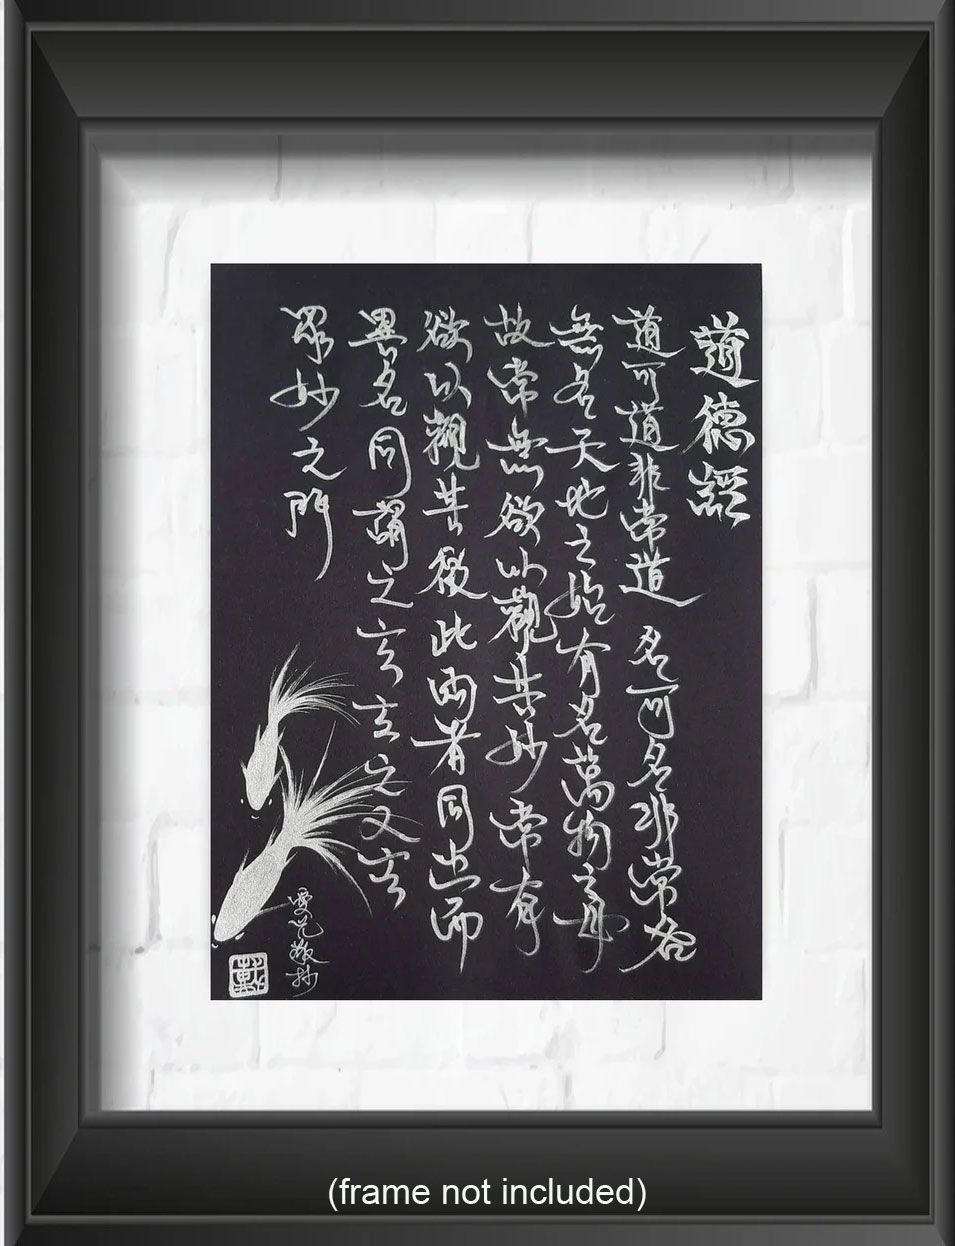 道德經
道可道非常道 名可名非常名
無名天地之始有名萬物之母
故常無欲以觀其妙常有
欲以觀其徼此兩者同出而
異名同謂之玄玄之又玄
眾妙之門
敬抄
(frame not included)